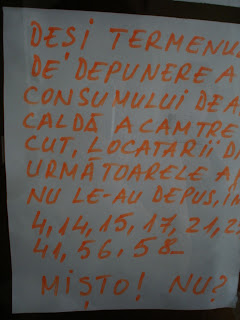 DEȘI TERMENUL
DE DEPUNERE A
CONSUMULUI DE A
CALDĂ A CAM TRE
CUT, LOCATARII DI
URMĂTOARELE A
NU LE-AU DEPUS, 
4, 14, 15, 17, 21, 2
41, 56, 58...
MIȘTO! NU?